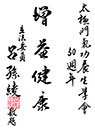 太極門氣功養生學會
30週年
增益健康
立法委員
呂孫綾
敬題